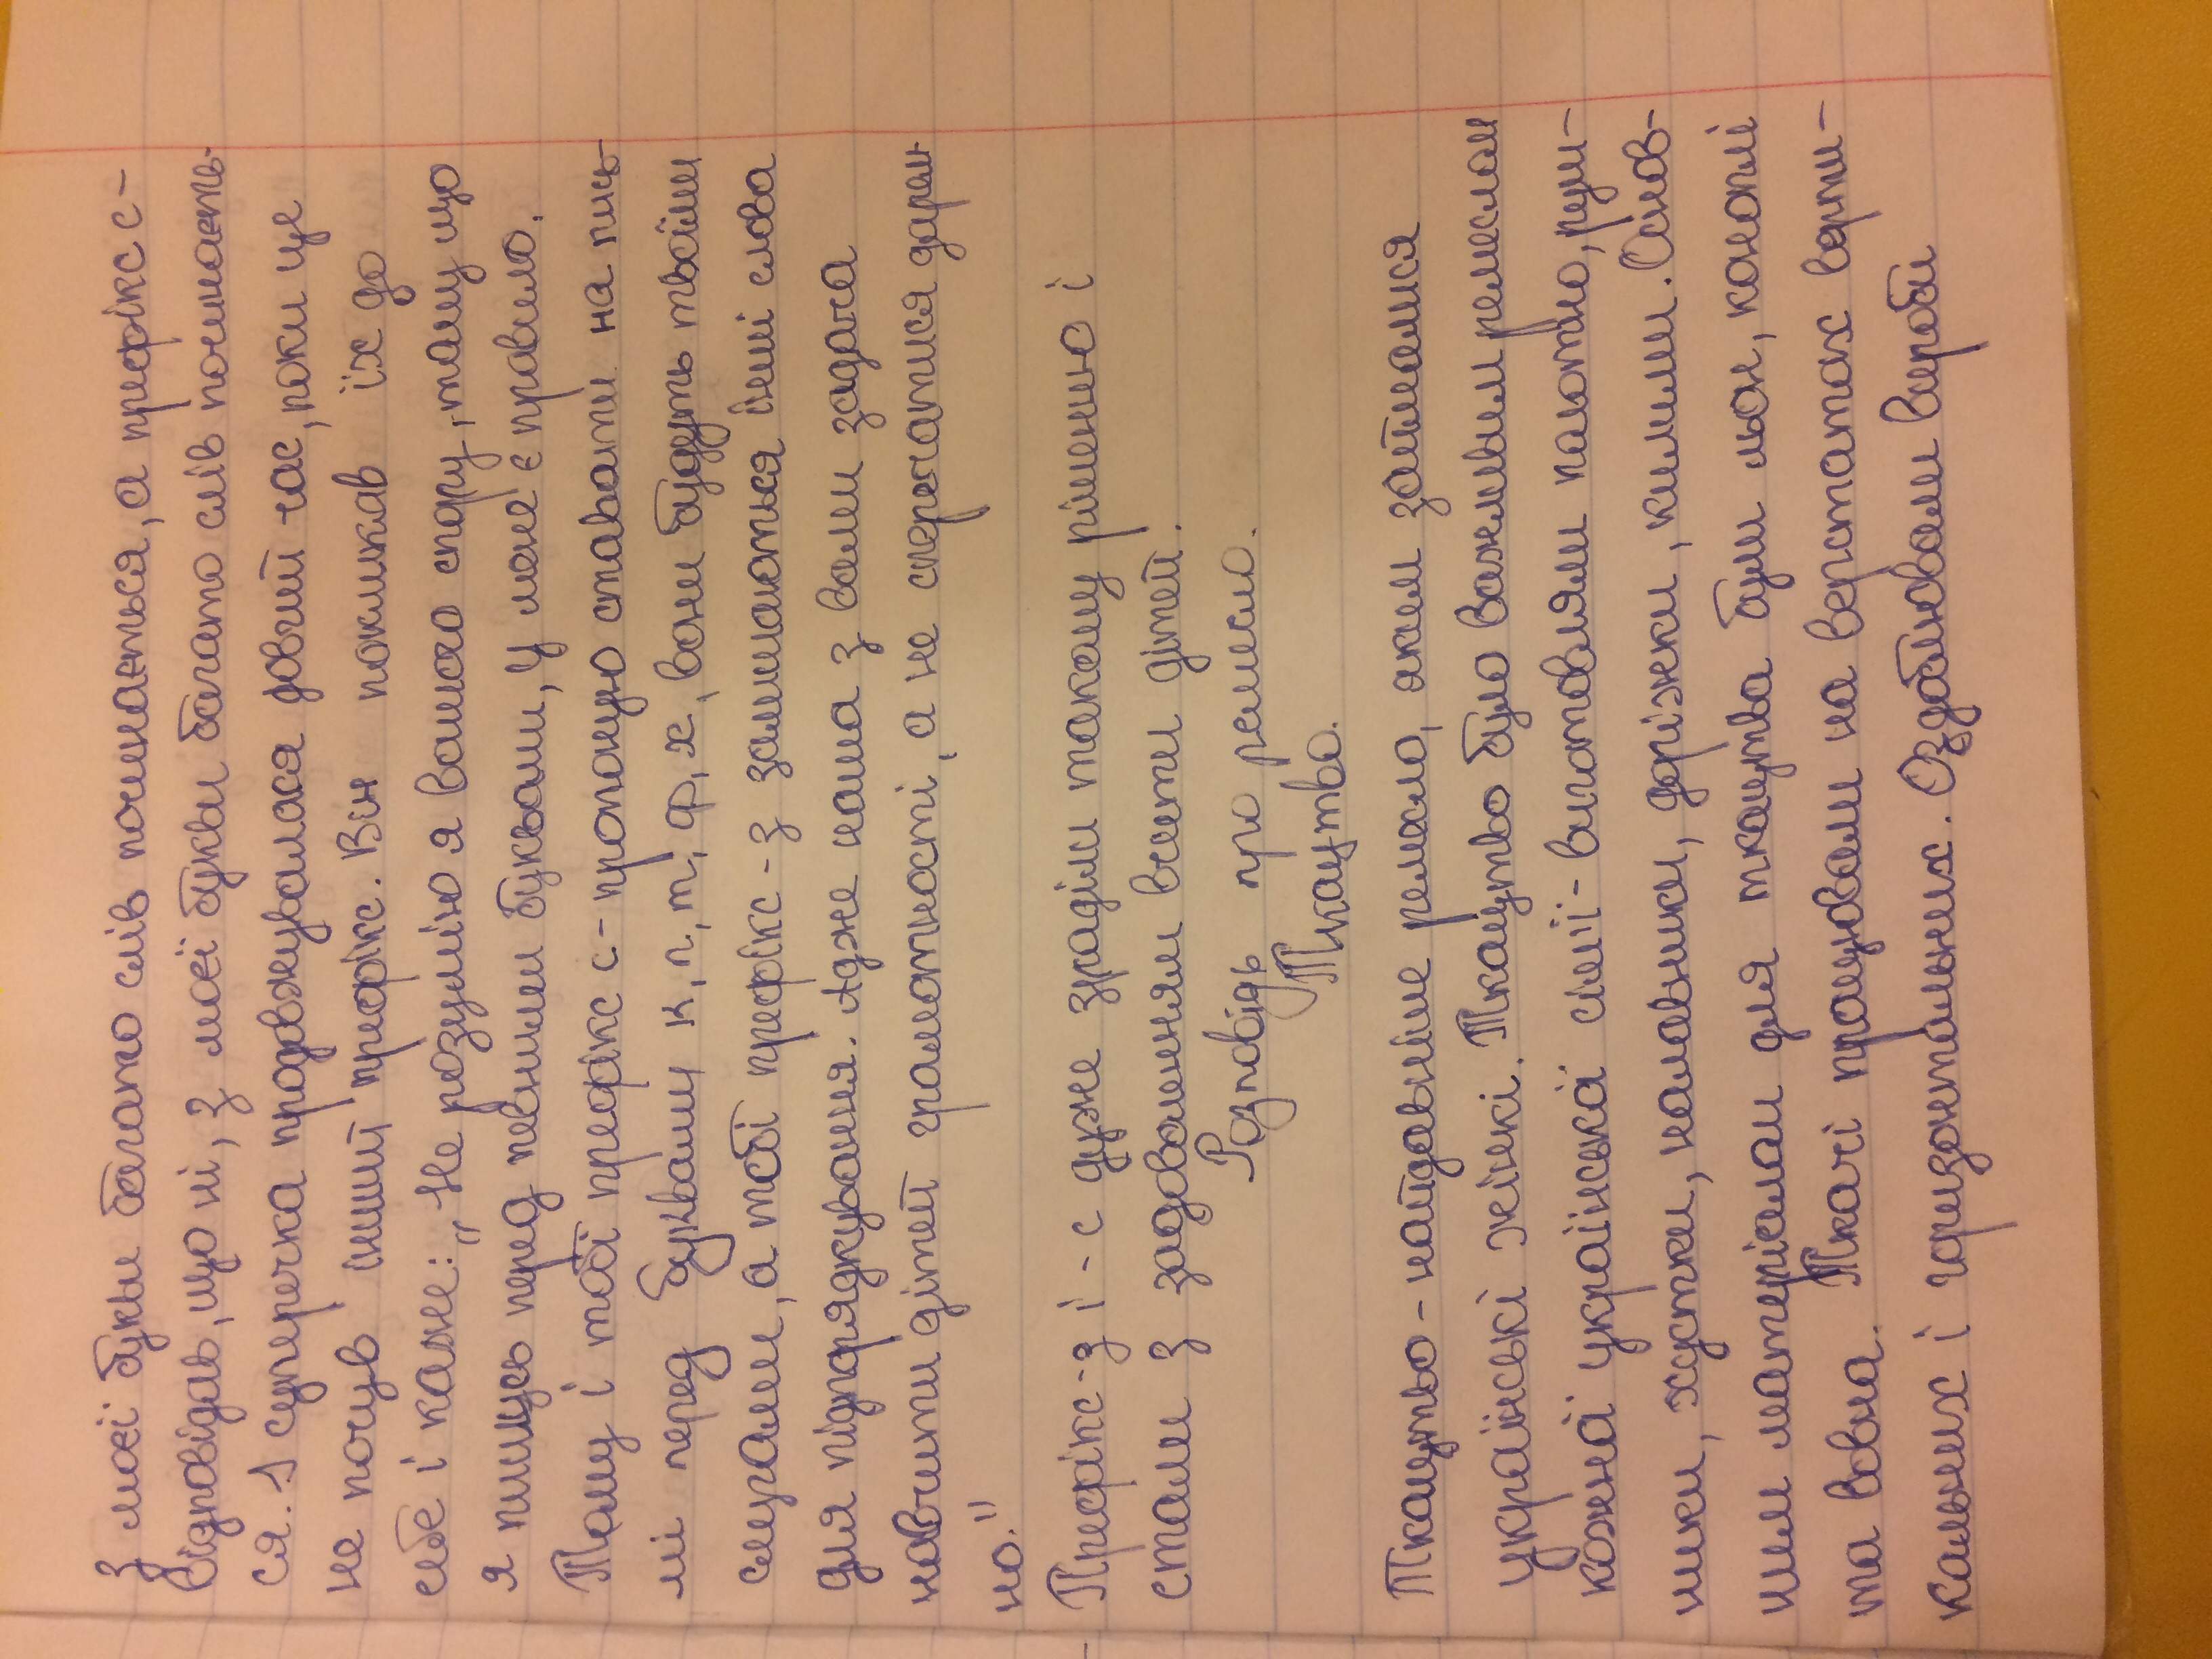 з моєї букви багато слів починається, а префікс с-
відповідав, що ні, з моєї букви багато слів починаеть-
ся. І суперечка продовжувалася довгий час, поки це
не почув інший префікс. Він покликав їх до
себе і каже: „Не розумію я вашого спору, тому що
я пишусь перед певними буквами, у мене є правило.
Тому і тобі префікс с- пропоную ставати на пись-
мі перед буквами к, п, т, ф, х, вони будуть твоїми
слугами, а тобі префікс - з залишаються інші слова
для підпорядкування. Адже наша з вами задача
навчити дітей грамотності, а не сперечатися дарем-
но."
Префікс - з і - с дуже зраділи такому рішенню і
стали з задоволенням вчити дітей.
Розповідь про ремесло.
Ткацтво.
Ткацтво - найдавніше ремело, яким займалися
українські жінкі. Ткацтво було важливим ремеслом
кожної української сімії - виготовляли полотно, руш-
ники, хустки, налавники, доріжки, килими. Основ-
ними матеріалами для ткацтва були льон, коноплі
та вовна. Ткачі працювали на верстатах верти-
кальних і горизонтальних. Оздоблювали вироби